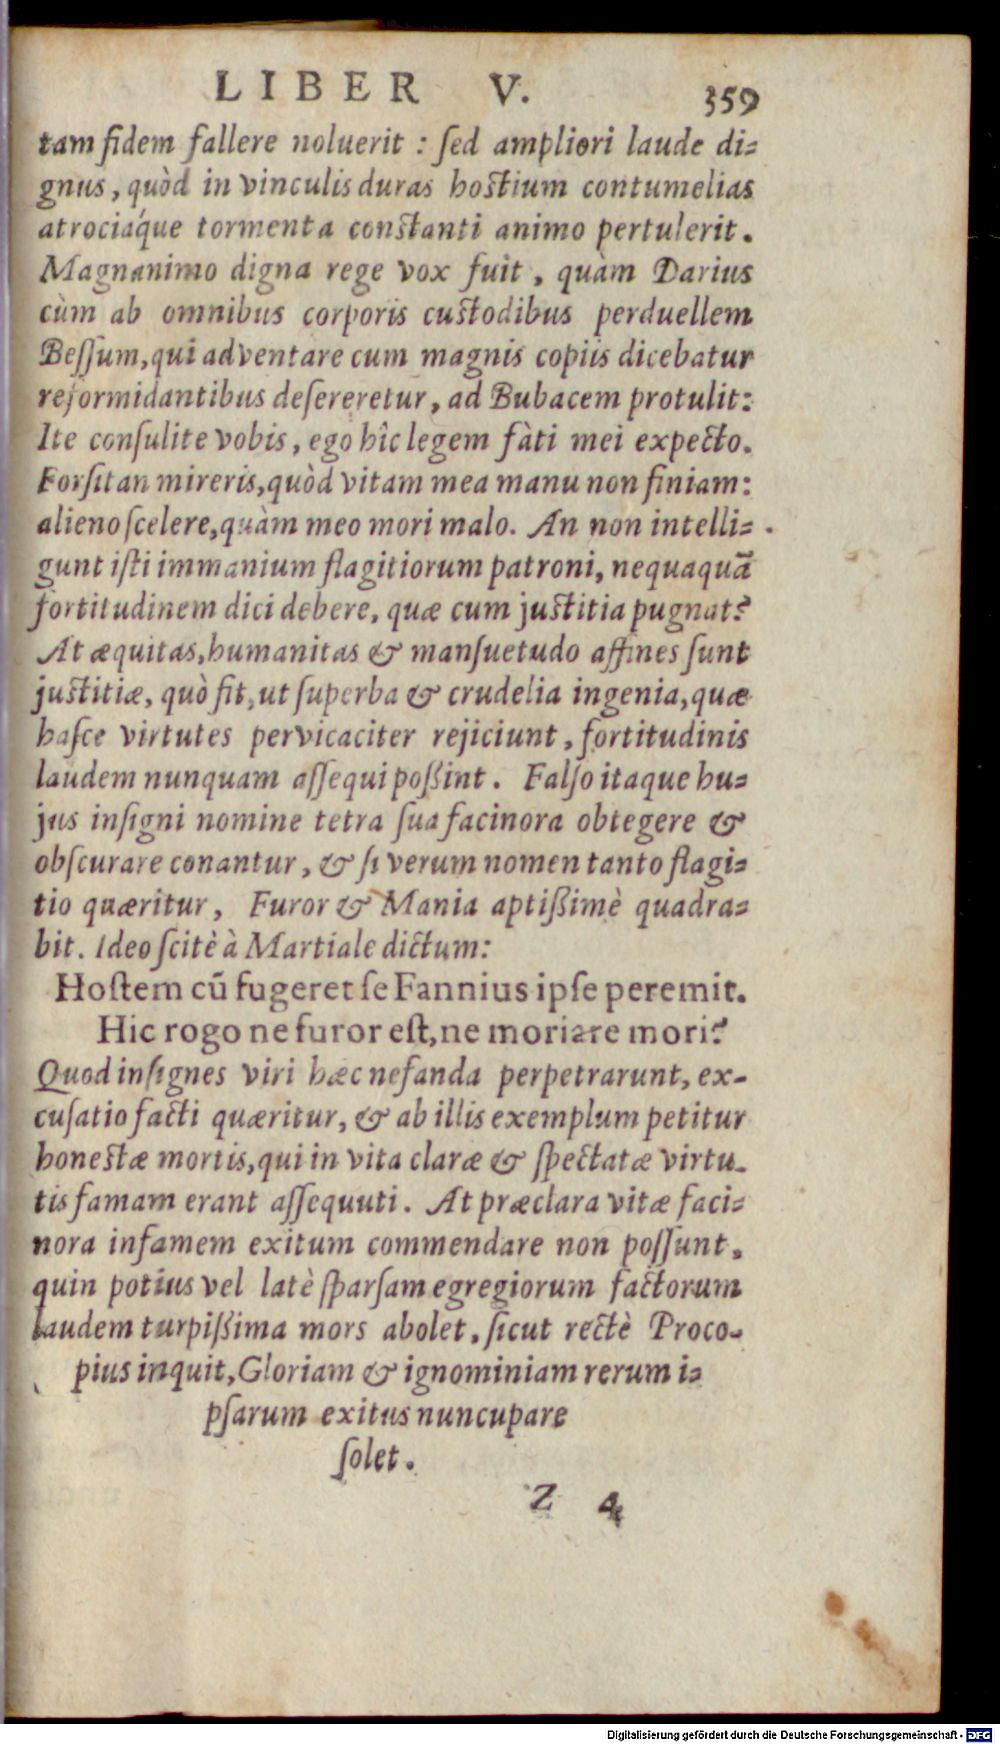 LIBER V. 359
tam fidem fallere noluerit : ſed ampliori laude di-
gnus, quòd in vinculis duras hoſtium contumelias
atrociáque tormenta conſtanti animo pertulerit.
Magnanimo digna rege vox fuit, quàm Darius
cùm ab omnibus corporis cuſtodibus perduellem
Beſſum, qui adventare cum magnis copiis dicebatur
reformidantibus deſereretur, ad Bubacem protulit:
Ite conſulite vobis, ego hîc legem fàti mei expecto.
Forſitan mireris, quòd vitam mea manu non finiam:
alieno ſcelere, quàm meo mori malo. An non intelli-
gunt iſti immanium flagitiorum patroni, nequaquā
fortitudinem dici debere, quæ cum juſtitia pugnat?
At æquitas, humanitas & manſuetudo affines ſunt
juſtitiæ, quò fit, ut ſuperba & crudelia ingenia, quæ
haſce virtutes pervicaciter rejiciunt, fortitudinis
laudem nunquam aſſequi poßint. Falſo itaque hu-
jus inſigni nomine tetra ſua facinora obtegere &
obſcurare conantur, & ſi verum nomen tanto flagi-
tio quæritur, Furor & Mania aptißimè quadra-
bit. Ideo ſcitè à Martiale dictum:
Hoſtem cū fugeret ſe Fannius ipſe peremit.
Hic rogo ne furor eſt, ne moriare mori?
Quod inſignes viri hæc nefanda perpetrarunt, ex-
cuſatio facti quæritur, & ab illis exemplum petitur
honeſtæ mortis, qui in vita claræ & ſpectatæ virtu-
tis famam erant aſſequuti. At præclara vitæ faci-
nora infamem exitum commendare non poſſunt,
quin potius vel latè ſparſam egregiorum factorum
laudem turpißima mors abolet, ſicut rectè Proco-
pius inquit, Gloriam & ignominiam rerum i-
pſarum exitus nuncupare
ſolet.
Z 4
Digitalisierung gefördert durch die Deutsche Forschungsgemeinschaft - DFG